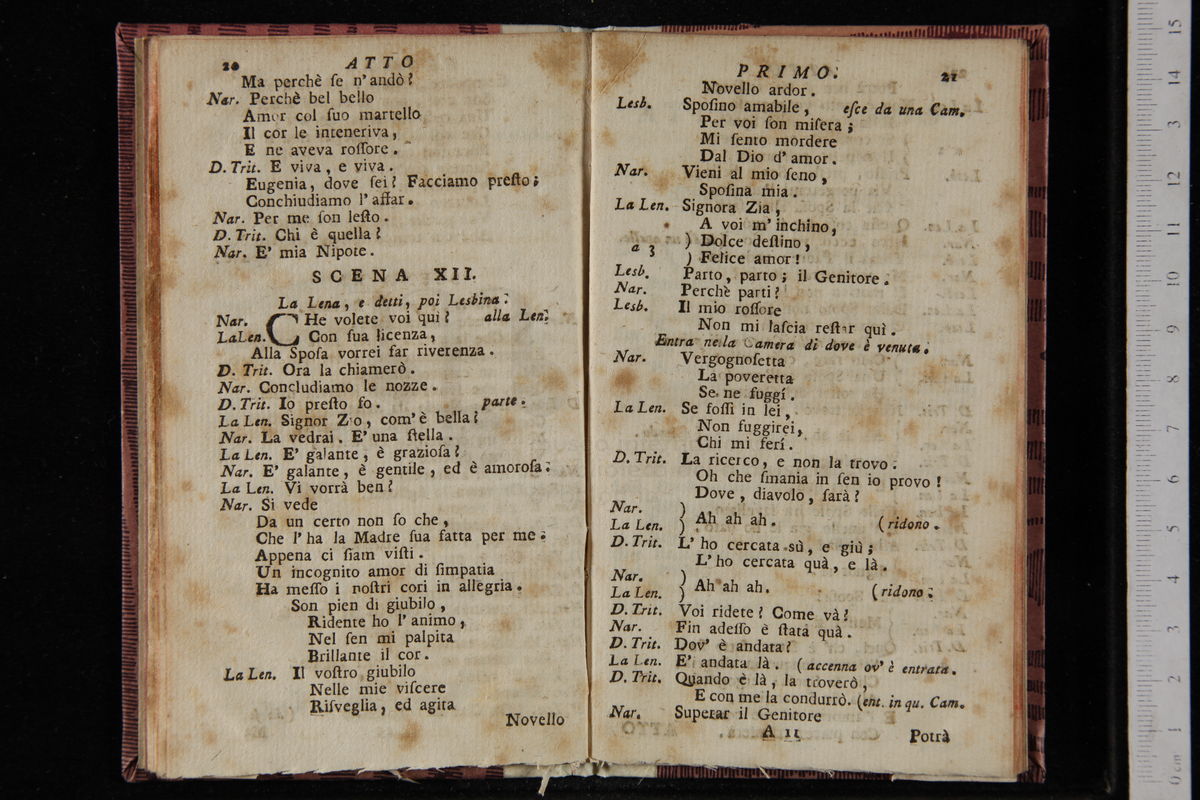 20 ATTO
Ma perchè ſe n'andò?
Nar. Perchè bel bello
Amor col ſuo martello
Il cor le inteneriva,
E ne aveva roſſore.
D. Trit. E viva, e viva.
Eugenia, dove ſei? Facciamo preſto;
Conchiudiamo l'affar.
Nar. Per me ſon leſto.
D. Trit. Chi è quella?
Nar. E' mia Nipote.
SCENA XII.
La Lena, e detti, poi Lesbina.
Nar. CHe volete voi qui? alla Len.
La Len. Con ſua licenza,
Alla Spoſa vorrei far riverenza.
D. Trit. Ora la chiamerò.
Nar. Concludiamo le nozze.
D. Trit. Io preſto fo. parte.
La Len. Signor Zio, com'è bella?
Nar. La vedrai. E' una ſtella.
La Len. E' galante, è grazioſa?
Nar. E' galante, è gentile, ed è amoroſa.
La Len. Vi vorrà ben?
Nar. Si vede
Da un certo non ſo che,
Che l'ha la Madre ſua fatta per me.
Appena ci ſiam viſti.
Un incognito amor di ſimpatia
Ha meſſo i noſtri cori in allegria.
Son pien di giubilo,
Ridente ho l'animo,
Nel ſen mi palpita
Brillante il cor.
La Len. Il voſtro giubilo
Nelle mie viſcere
Riſveglia, ed agita
Novello
PRIMO. 21
Novello ardor.
Lesb. Spoſino amabile, eſce da una Cam.
Per voi ſon miſera;
Mi ſento mordere
Dal Dio d'amor.
Nar. Vieni al mio ſeno,
Spoſina mia.
La Len. Signora Zia,
A voi m'inchino,
a 3 ) Dolce deſtino,
) Felice amor!
Lesb. Parto, parto; il Genitore.
Nar. Perchè parti?
Lesb. Il mio roſſore
Non mi laſcia reſtar quì.
Entra nella Camera di dove è venuta.
Nar. Vergognoſetta
La poveretta
Se ne fuggí.
La Len. Se foſſi in lei,
Non fuggirei,
Chi mi ferí.
D. Trit. La ricerco, e non la trovo.
Oh che ſmania in ſen io provo!
Dove, diavolo, ſarà?
Nar. )
La Len. ) Ah ah ah. (ridono.
D. Trit. L'ho cercata sù, e giù;
L'ho cercata quà, e là.
Nar. )
La Len. ) Ah ah ah. (ridono.
D. Trit. Voi ridete? Come và?
Nar. Fin adeſſo è ſtata quà.
D. Trit. Dov' è andata?
La Len. E' andata là. (accenna ov' è entrata.
D. Trit. Quando è là, la troverò,
E con me la condurrò. (ent. in qu. Cam.
Nar. Superar il Genitore
A 11 Potrà